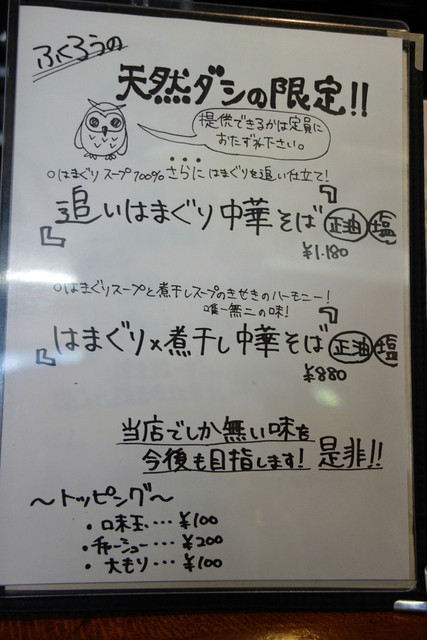 ふくろうの
天然ダシの限定!!
提供できるかは定員に
おたずね下さい。
○はまぐりスープ100% さらに はまぐりを追い仕立て!
『追いはまぐり中華そば』 正油 塩
¥1.180
○はまぐりスープと煮干しスープのきせきのハーモニー!
唯一無二の味!
『はまぐり×煮干し中華そば』 正油 塩
¥880
当店でしか無い味を
今後も目指します! 是非!!
〜トッピング〜
・味玉・・・¥100
・チャーシュー・・・¥200
・大もり・・・¥100